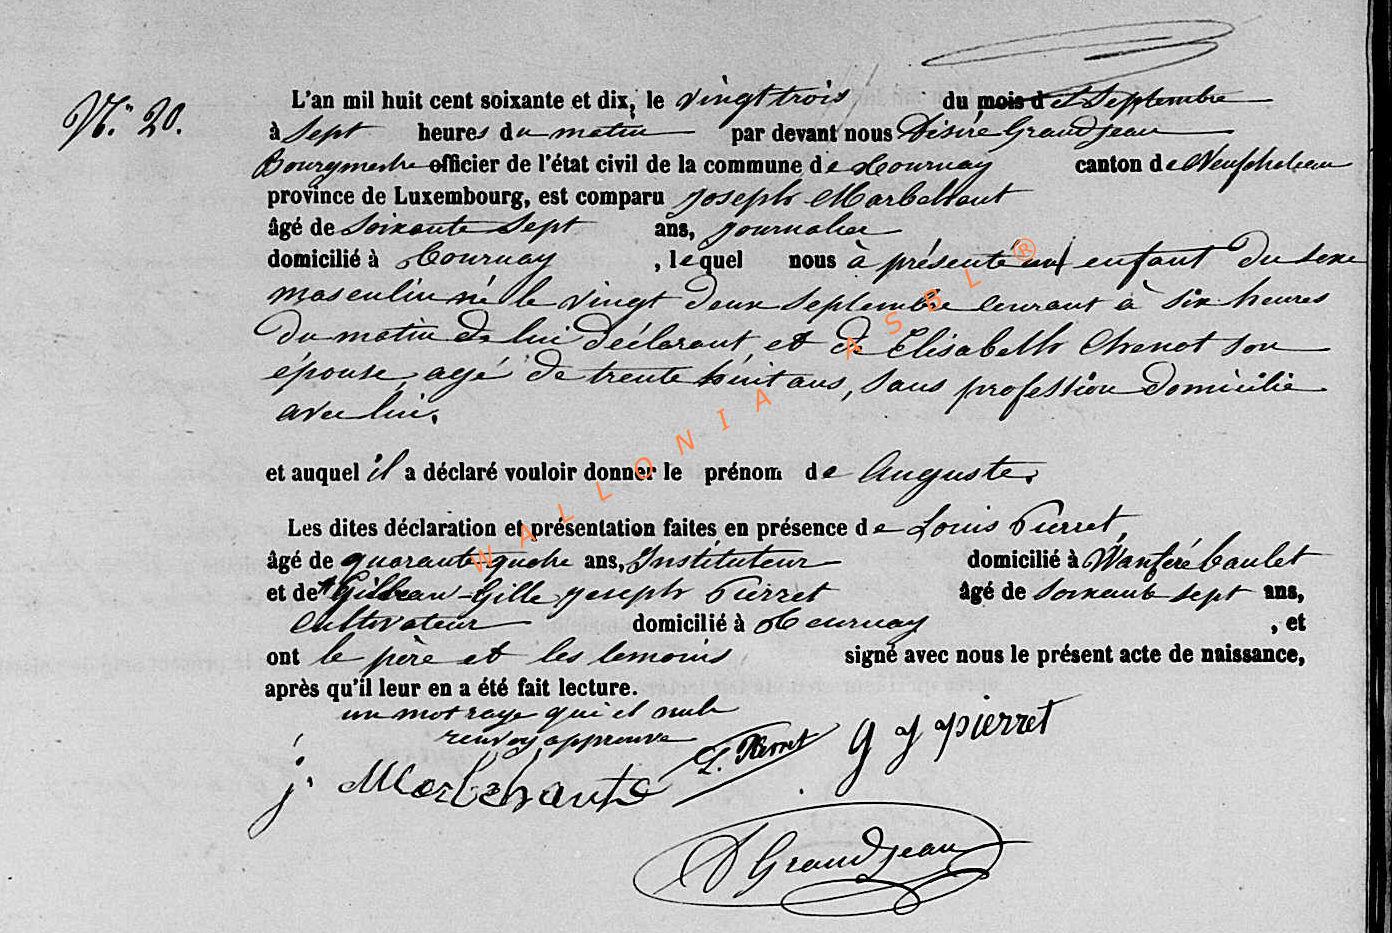 Nº 20.
L'an mil huit cent soixante et dix, le vingt trois du mois de Septembre
à Sept heures du matin par devant nous Désiré Grandjean
Bourgmestre officier de l'état civil de la commune de Tournay canton de Neufchateau
province de Luxembourg, est comparu Joseph Marbehant
âgé de soixante sept ans, journalier
domicilié à Tournay, lequel nous à présenté un enfant du sexe
masculin né le vingt deux Septembre courant à six heures
du matin de lui déclarant et de Elisabeth Chenot son
épouse, agé de trente huit ans, sans profession domicilié
avec lui.
et auquel il a déclaré vouloir donner le prénom de Auguste.
Les dites déclaration et présentation faites en présence de Louis Pierret,
âgé de quarante quatre ans, Instituteur domicilié à Wanferé baulet
et de Gille Joseph Pierret âgé de soixante sept ans,
Cultivateur domicilié à Tournay, et
ont le père et les temoins signé avec nous le présent acte de naissance,
après qu'il leur en a été fait lecture.
un mot rayé qui est nul
renvoy approuvé
j. Marbehant L. Pierret g j pierret
D Grandjean
WALLONIA ASBL ®